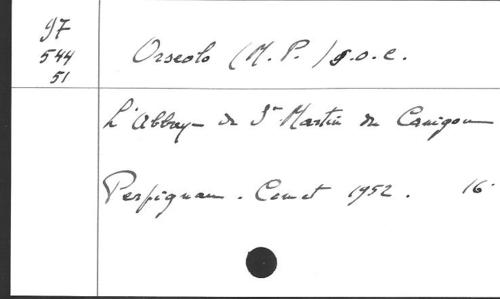 97
544
51
Orseolo (M. P.) s.o.c.
L'Abbaye de St Martin du Canigou
Perpignan. Comet 1952. 16°